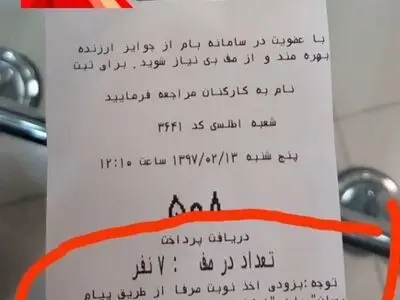 با عضویت در سامانه بام از جوایز ارزنده
بهره مند و از صف بی نیاز شوید. برای ثبت
نام به کارکنان مراجعه فرمایید
شعبه اطلسی کد ۳۶۴۱
پنج شنبه ۱۳۹۷/۰۲/۱۳ ساعت ۱۲:۱۰
۵۰۸
دریافت پرداخت
تعداد در صف : ۷ نفر
توجه:بزودی اخذ نوبت صرفا از طریق پیام